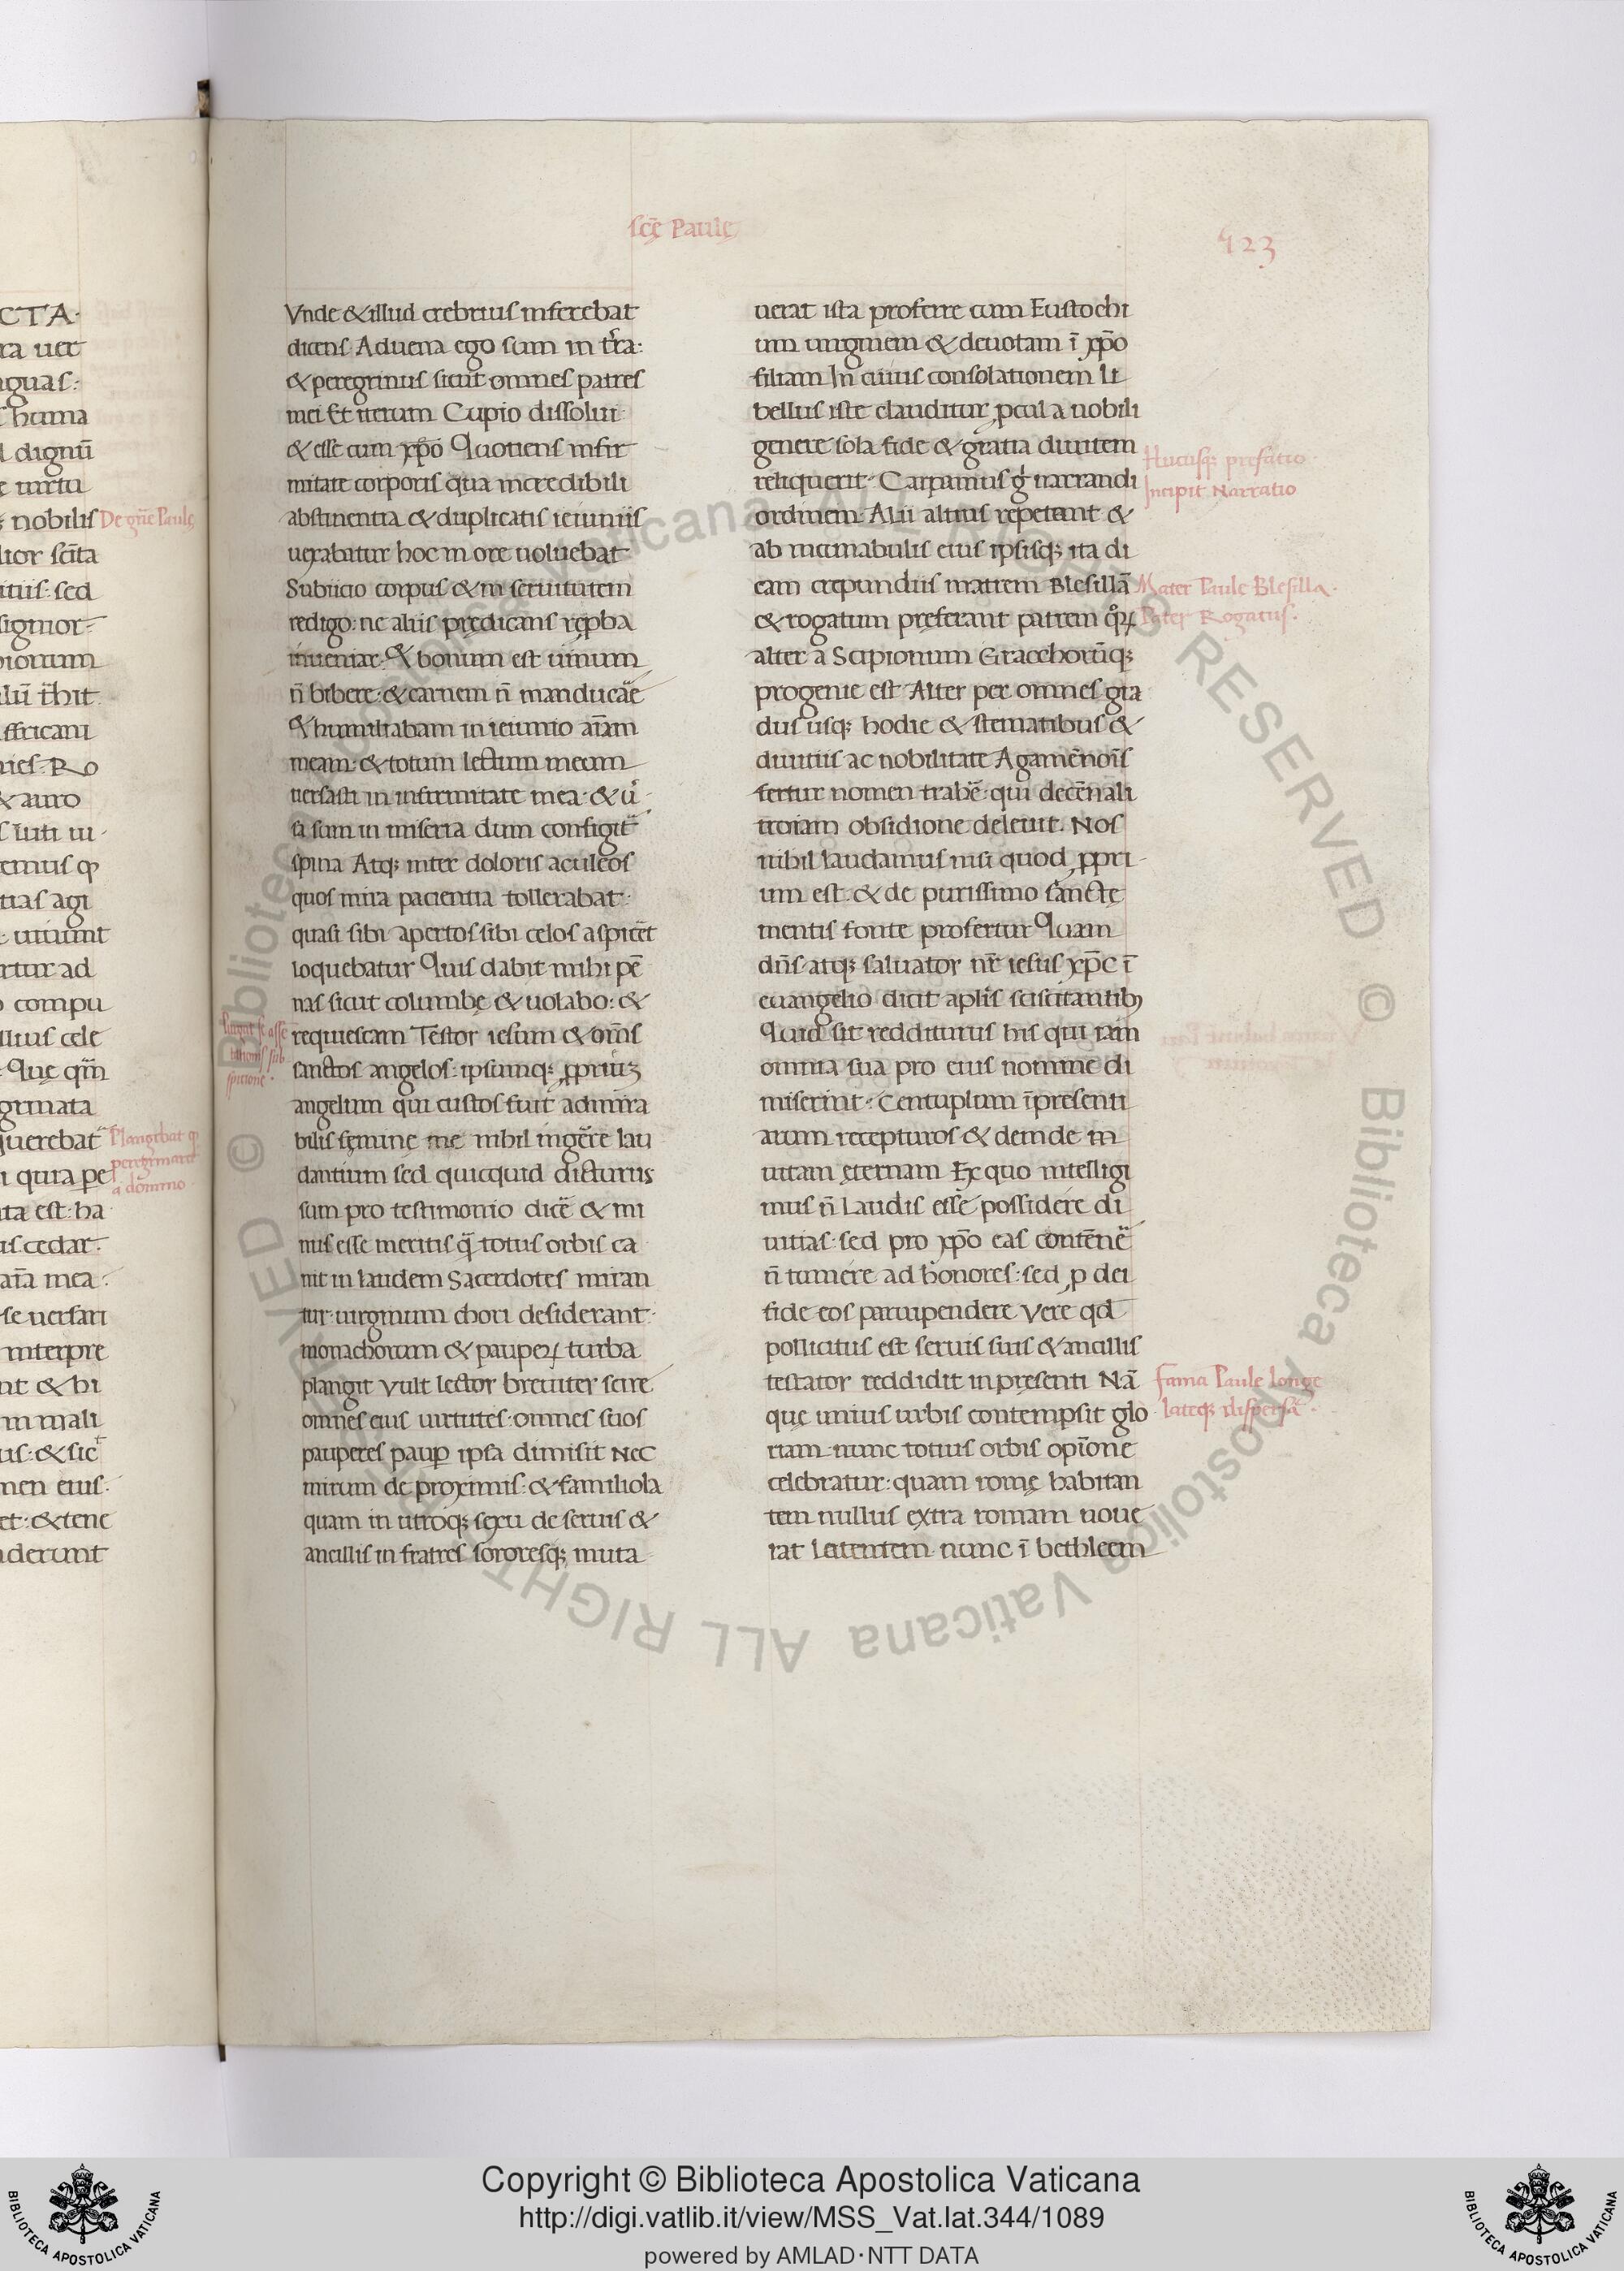 scę Paulę
523
Vnde & illud crebrius inferebat
dicens Aduena ego sum in tr̄a:
& peregrinus sicut omnes patres
mei Et iterum Cupio dissolui
& esse cum xp̄o Quotiens infir
mitate corporis qua incredibili
abstinentia & duplicatis ieiuniis
uexabatur hoc in ore uoluebat
Subiicio corpus & in seruitutem
redigo: ne aliis prędicans rep̱ba
inueniar. & bonum est uinum
n̄ bibere: & carnem n̄ manducar̄e
& humiliabam in ieiunio aīam
meam. & totum lectum meum
uersasti in infirmitate mea. & ū
sa sum in miseria dum configit̄
spina Atq; inter doloris aculeos
quos mira pacientia tollerabat.
quasi sibi apertos sibi celos aspicēt
loquebatur Quis dabit mihi pē
nas sicut columbę & uolabo: &
requiescam Testor iesum & om̄s
sanctos angelos: ipsumq; ꝓprium
angelum qui custos fuit admira
bilis feminę me nihil in gr̄e lau
dantium sed quicquid dicturus
sum pro testimonio dicē & mi
nus esse meritis q̄ totus orbis ca
nit in laudem Sacerdotes miran
tur. uirginum chori desiderant.
monachorum & pauperꝝ turba
plangit vult lector breuiter scire
omnes eius uirtutes: omnes suos
pauperes paup̱ ipsa dimisit Nec
mirum de proximis: & familiola
quam in utroq; sexu de seruis &
ancillis in fratres sororesq; muta
uerat ista proferre cum Eustochi
um uirginem & deuotam ī xp̄o
filiam In cuius consolationem li
bellus iste clauditur ꝓcul a nobili
genere sola fide & gratia diuitem
reliquerit. Carpamus g̊ narrandi
ordinem. Alii altius repetant &
ab incunabulis eius ipsisq; ita di
cam crepundiis matrem Blesillā
& rogatum pręferant patrem quoꝝ
alter a Scipionum Gracchorūq;
progenie est Alter per omnes gra
dus usq; hodie & stematibus &
diuitiis ac nobilitate Agamēnoīs
fertur nomen trahē. qui decēnali
troiam obsidione deleuit. Nos
nihil laudamus nisi quod ꝓpri
um est. & de purissimo sanctę
mentis fonte profertur Quam
dn̄s atq; saluator nr̄ iesus xp̄c ī
euangelio dicit aplīs sciscitantib;
Quid sit redditurus his qui iam
omnia sua pro eius nomine di
miserint. Centuplum īpresenti
arum recepturos & deinde in
uitam ęternam Ex quo intelligi
mus n̄ laudis esse possidere di
uitias: sed pro xp̄o eas contēnē
n̄ tumere ad honores: sed ꝓ dei
fide eos paruipendere Vere qd
pollicitus est seruis suis & ancillis
testator reddidit in pręsenti Nā
que unius urbis contempsit glo
riam. nunc totius orbis opīone
celebratur: quam romę habitan
tem nullus extra romam noue
rat Latentem nunc ī bethleem
Hucusq; prefatio.
Incipit Narratio
Mater Paule Blesilla.
Pater Rogatus.
fama Paule longe
lateq; dispersa.
De gn̄e Paulę
Plangebat q̱
peregrinaret̄
a domino
Copyright © Biblioteca Apostolica Vaticana
http://digi.vatlib.it/view/MSS_Vat.lat.344/1089
powered by AMLAD·NTT DATA